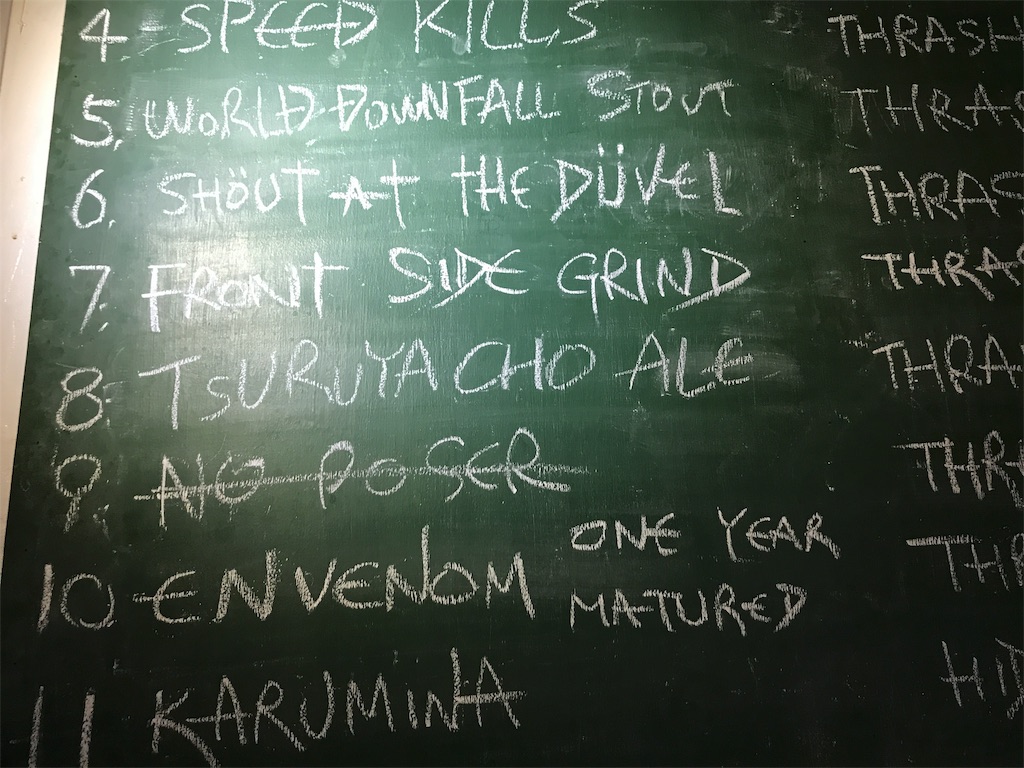 4 SPEED KILLS THRASH
5. WORLD DOWNFALL STOUT THRAS
6. SHÖUT AT THE DÜVEL THRAS
7. FRONT SIDE GRIND THRAS
8. TSURUYACHO ALE THRA
9. NO POSER THR
10 ENVENOM ONE YEAR MATURED THR
11 KARUMINA HID